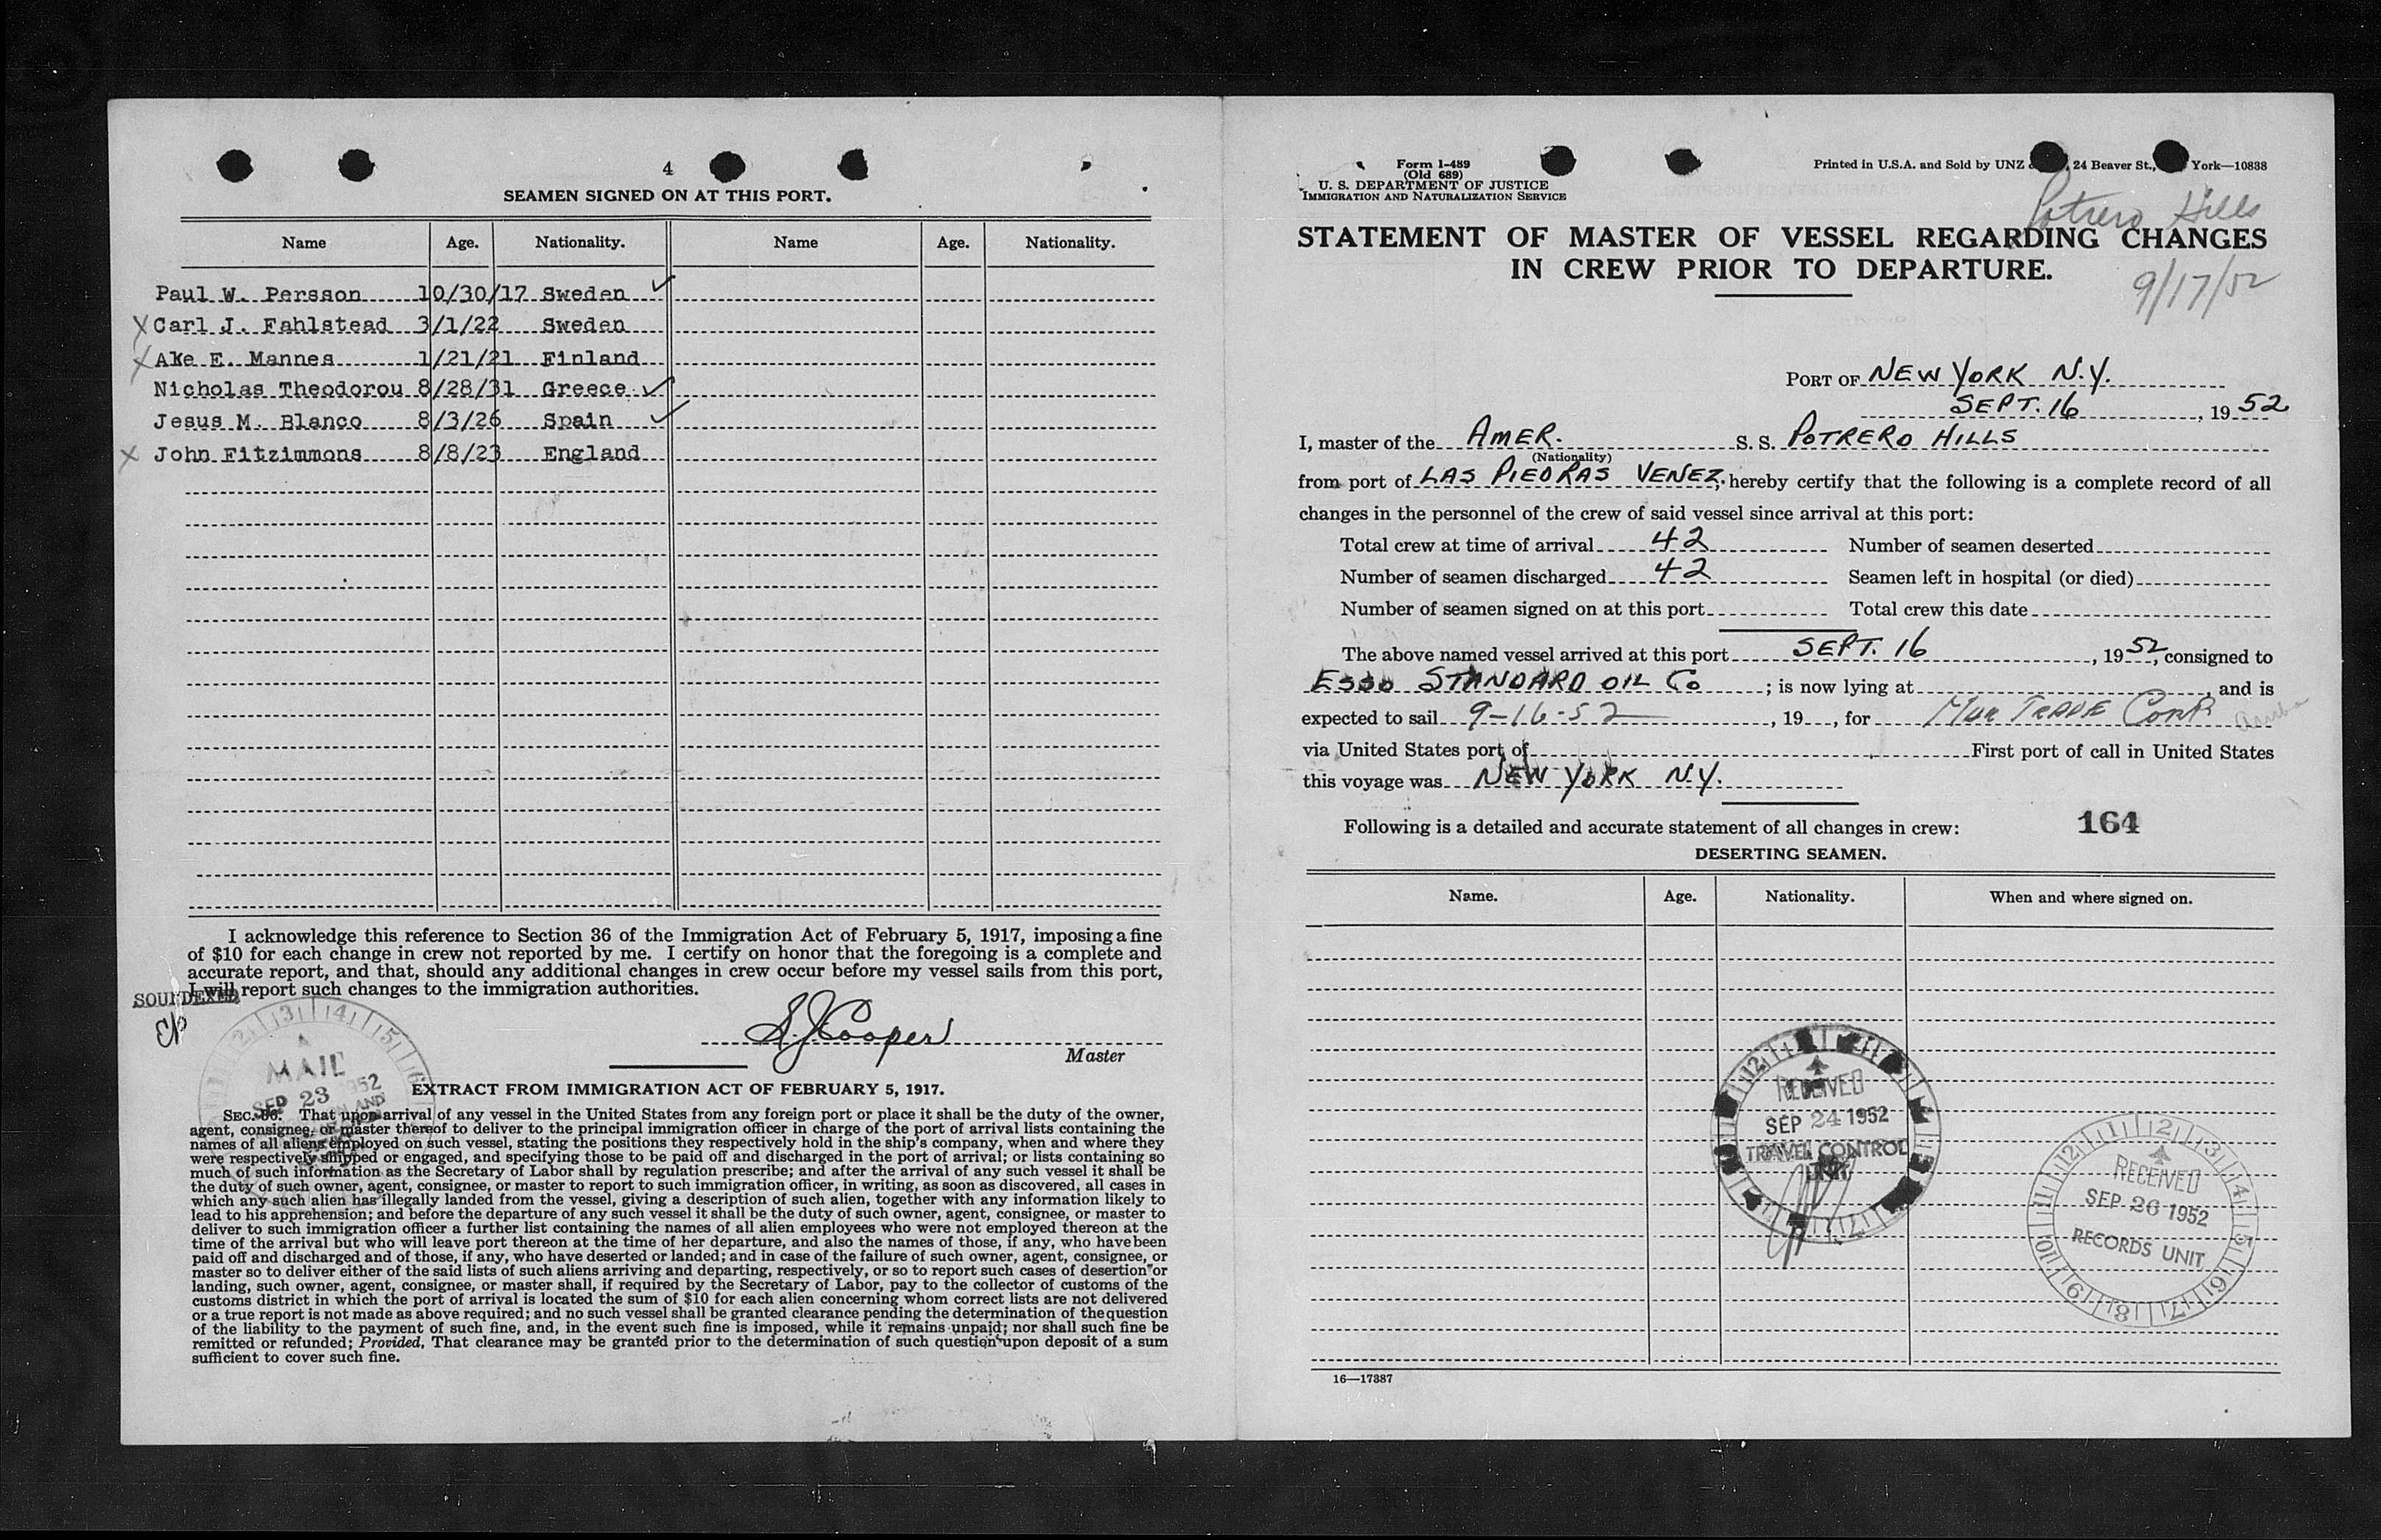 4
SEAMEN SIGNED ON AT THIS PORT.
Name Age. Nationality. Name Age. Nationality.
Paul W. Persson 10/30/17 Sweden ✓
X Carl J. Fahlstead 3/1/22 Sweden
X Ake E. Mannes 1/21/21 Finland
Nicholas Theodorou 8/28/31 Greece ✓
Jesus M. Blanco 8/3/26 Spain ✓
X John Fitzimmons 8/8/23 England
I acknowledge this reference to Section 36 of the Immigration Act of February 5, 1917, imposing a fine
of $10 for each change in crew not reported by me. I certify on honor that the foregoing is a complete and
accurate report, and that, should any additional changes in crew occur before my vessel sails from this port,
I will report such changes to the immigration authorities.
SOUNDEXED
S. J. Cooper
Master
MAIL
SEP 23 1952
EXTRACT FROM IMMIGRATION ACT OF FEBRUARY 5, 1917.
SEC. 36. That upon arrival of any vessel in the United States from any foreign port or place it shall be the duty of the owner,
agent, consignee, or master thereof to deliver to the principal immigration officer in charge of the port of arrival lists containing the
names of all aliens employed on such vessel, stating the positions they respectively hold in the ship's company, when and where they
were respectively shipped or engaged, and specifying those to be paid off and discharged in the port of arrival; or lists containing so
much of such information as the Secretary of Labor shall by regulation prescribe; and after the arrival of any such vessel it shall be
the duty of such owner, agent, consignee, or master to report to such immigration officer, in writing, as soon as discovered, all cases in
which any such alien has illegally landed from the vessel, giving a description of such alien, together with any information likely to
lead to his apprehension; and before the departure of any such vessel it shall be the duty of such owner, agent, consignee, or master to
deliver to such immigration officer a further list containing the names of all alien employees who were not employed thereon at the
time of the arrival but who will leave port thereon at the time of her departure, and also the names of those, if any, who have been
paid off and discharged and of those, if any, who have deserted or landed; and in case of the failure of such owner, agent, consignee, or
master so to deliver either of the said lists of such aliens arriving and departing, respectively, or so to report such cases of desertion or
landing, such owner, agent, consignee, or master shall, if required by the Secretary of Labor, pay to the collector of customs of the
customs district in which the port of arrival is located the sum of $10 for each alien concerning whom correct lists are not delivered
or a true report is not made as above required; and no such vessel shall be granted clearance pending the determination of the question
of the liability to the payment of such fine, and, in the event such fine is imposed, while it remains unpaid; nor shall such fine be
remitted or refunded; Provided, That clearance may be granted prior to the determination of such question upon deposit of a sum
sufficient to cover such fine.
Form 1-489
(Old 689)
U. S. DEPARTMENT OF JUSTICE
IMMIGRATION AND NATURALIZATION SERVICE
Printed in U.S.A. and Sold by UNZ 24 Beaver St., York—10838
Potrero Hills
STATEMENT OF MASTER OF VESSEL REGARDING CHANGES
IN CREW PRIOR TO DEPARTURE.
9/17/52
PORT OF NEW YORK N.Y.
SEPT. 16, 1952
I, master of the AMER. S. S. POTRERO HILLS
(Nationality)
from port of LAS PIEDRAS VENEZ., hereby certify that the following is a complete record of all
changes in the personnel of the crew of said vessel since arrival at this port:
Total crew at time of arrival 42 Number of seamen deserted
Number of seamen discharged 42 Seamen left in hospital (or died)
Number of seamen signed on at this port Total crew this date
The above named vessel arrived at this port SEPT. 16, 1952, consigned to
ESSO STANDARD OIL CO; is now lying at , and is
expected to sail 9-16-52, 19 , for Mar TRADE CORP. Aruba
via United States port of First port of call in United States
this voyage was NEW YORK N.Y.
Following is a detailed and accurate statement of all changes in crew: 164
DESERTING SEAMEN.
Name. Age. Nationality. When and where signed on.
RECEIVED
SEP 24 1952
TRAVEL CONTROL
UNIT
RECEIVED
SEP 26 1952
RECORDS UNIT
16—17387